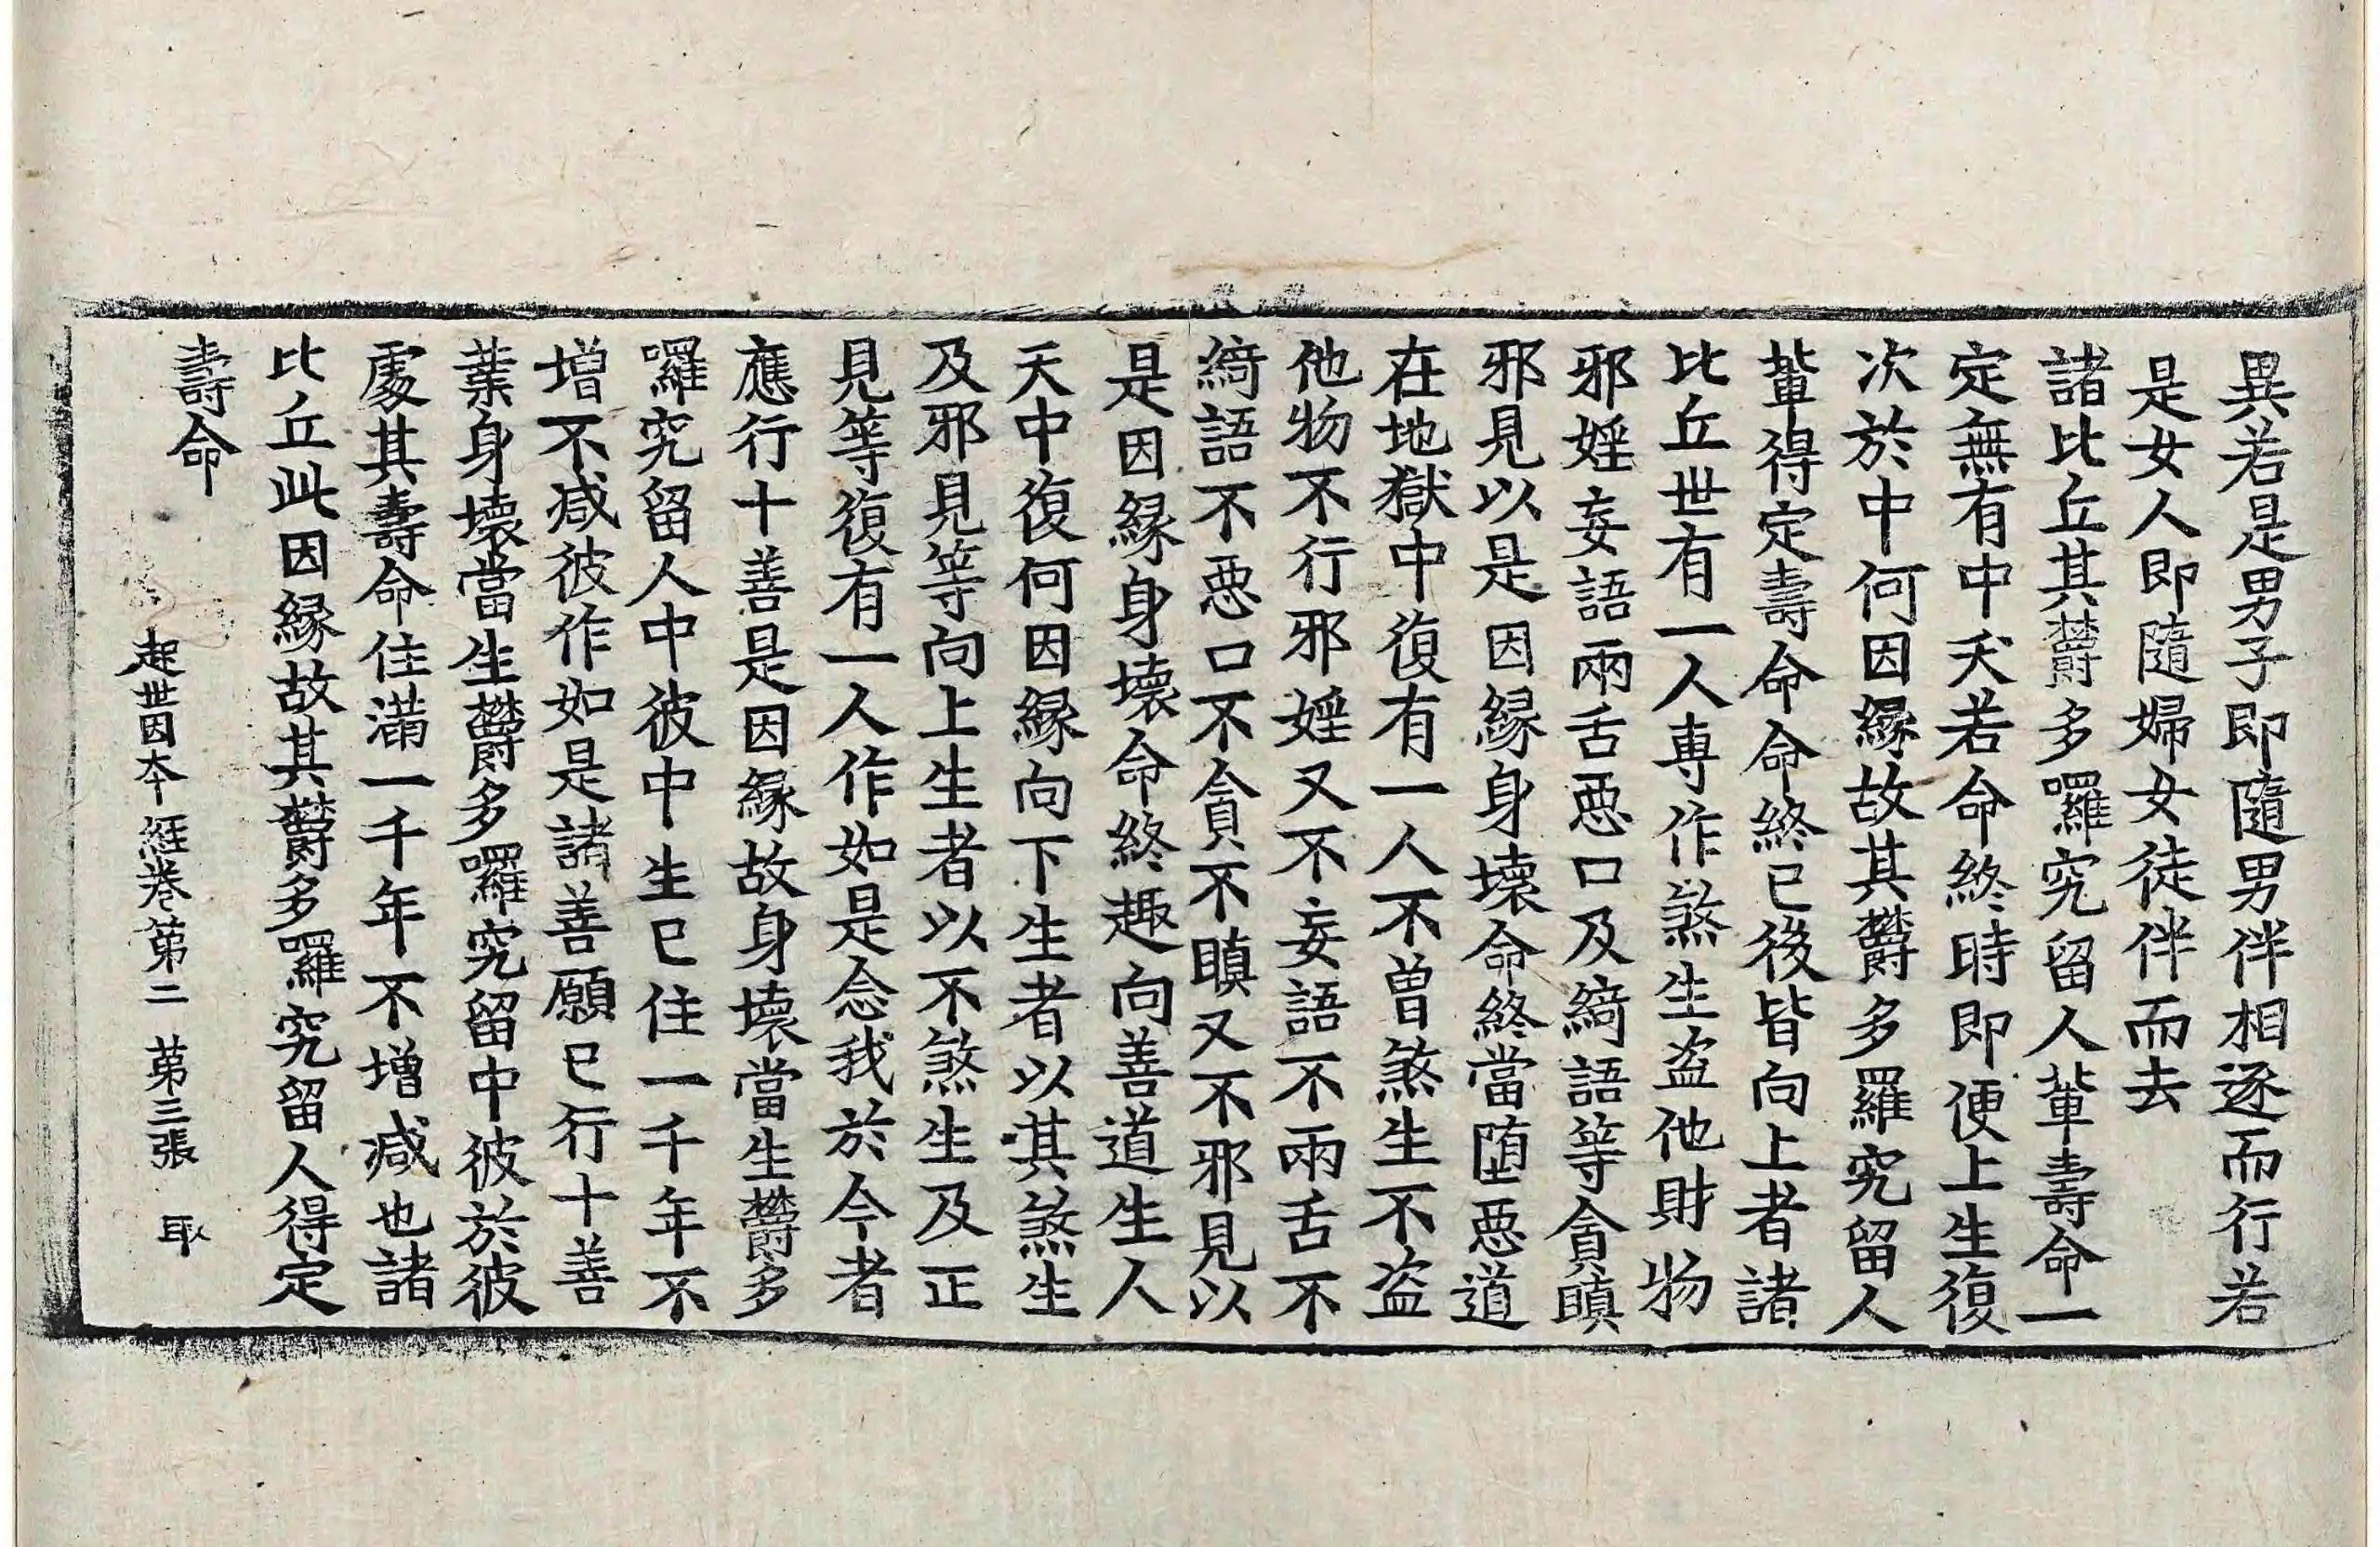 異若是男子即隨男伴相逐而行若
是女人即隨婦女徒伴而去
諸比丘其欝多囉究留人輩壽命一
定無有中夭若命終時即便上生復
次於中何因縁故其欝多羅究留人
輩得定壽命命終已後皆向上者諸
比丘世有一人專作煞生盗他財物
邪婬妄語兩舌惡口及綺語等貪瞋
邪見以是因縁身壞命終當墮惡道
在地獄中復有一人不曽煞生不盗
他物不行邪婬又不妄語不兩舌不
綺語不惡口不貪不瞋又不邪見以
是因縁身壞命終趣向善道生人
天中復何因縁向下生者以其煞生
及邪見等向上生者以不煞生及正
見等復有一人作如是念我於今者
應行十善是因縁故身壞當生欝多
囉究留人中彼中生已住一千年不
増不减彼作如是諸善願已行十善
業身壞當生欝多囉究留中彼於彼
處其壽命住滿一千年不増减也諸
比丘此因縁故其欝多囉究留人得定
壽命
起世因本經卷第二 第三張 取